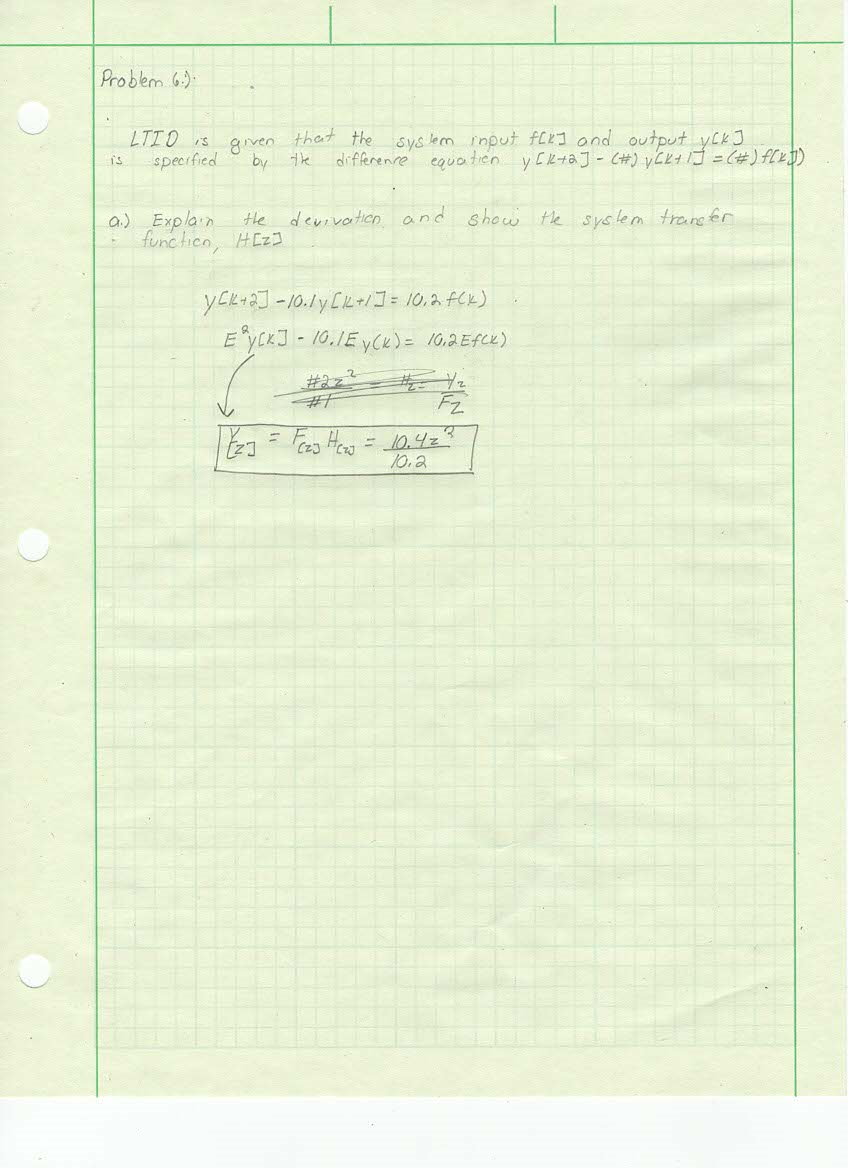 Problem 6.)
LTID is given that the system input f[k] and output y[k]
is specified by the difference equation y[k+2] - (#) y[k+1] = (#) f[k])
a.) Explain the derivation and show the system transfer
function, H[z]
y[k+2] - 10.1y[k+1] = 10.2 f(k)
E²y[k] - 10.1E y(k) = 10.2Ef(k)
#2z² = Hz = Yz
#1 Fz
Y[z] = F[z] H[z] = 10.4z²
10.2